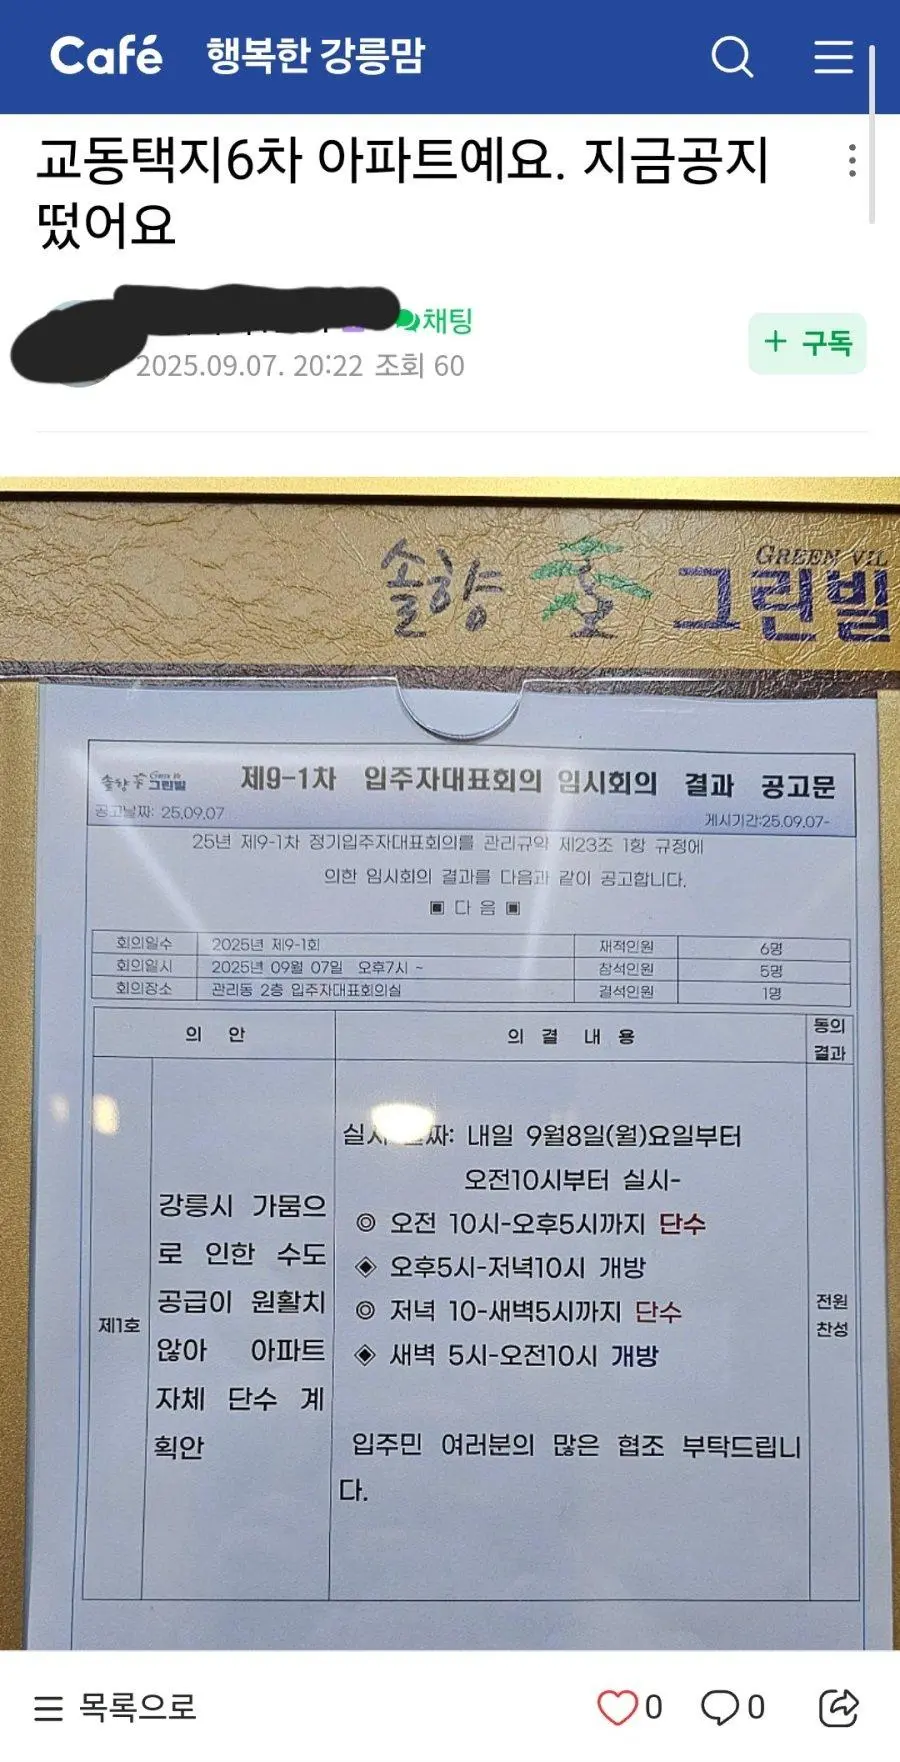 Café 행복한 강릉맘
교동택지6차 아파트예요. 지금공지
떴어요
채팅
2025.09.07. 20:22 조회 60
+ 구독
솔향 그린빌
GREEN VIL
솔향 그린빌
제9-1차 입주자대표회의 임시회의 결과 공고문
공고날짜: 25.09.07
게시기간:25.09.07-
25년 제9-1차 정기입주자대표회의를 관리규약 제23조 1항 규정에
의한 임시회의 결과를 다음과 같이 공고합니다.
▣ 다 음 ▣
회의일수 2025년 제9-1회 재적인원 6명
회의일시 2025년 09월 07일 오후7시 ~ 참석인원 5명
회의장소 관리동 2층 입주자대표회의실 결석인원 1명
의 안 의 결 내 용 동의
결과
제1호
강릉시 가뭄으
로 인한 수도
공급이 원활치
않아 아파트
자체 단수 계
획안
실시 짜: 내일 9월8일(월)요일부터
오전10시부터 실시-
◎ 오전 10시-오후5시까지 단수
◈ 오후5시-저녁10시 개방
◎ 저녁 10-새벽5시까지 단수
◈ 새벽 5시-오전10시 개방
입주민 여러분의 많은 협조 부탁드립니
다.
전원
찬성
목록으로
0 0